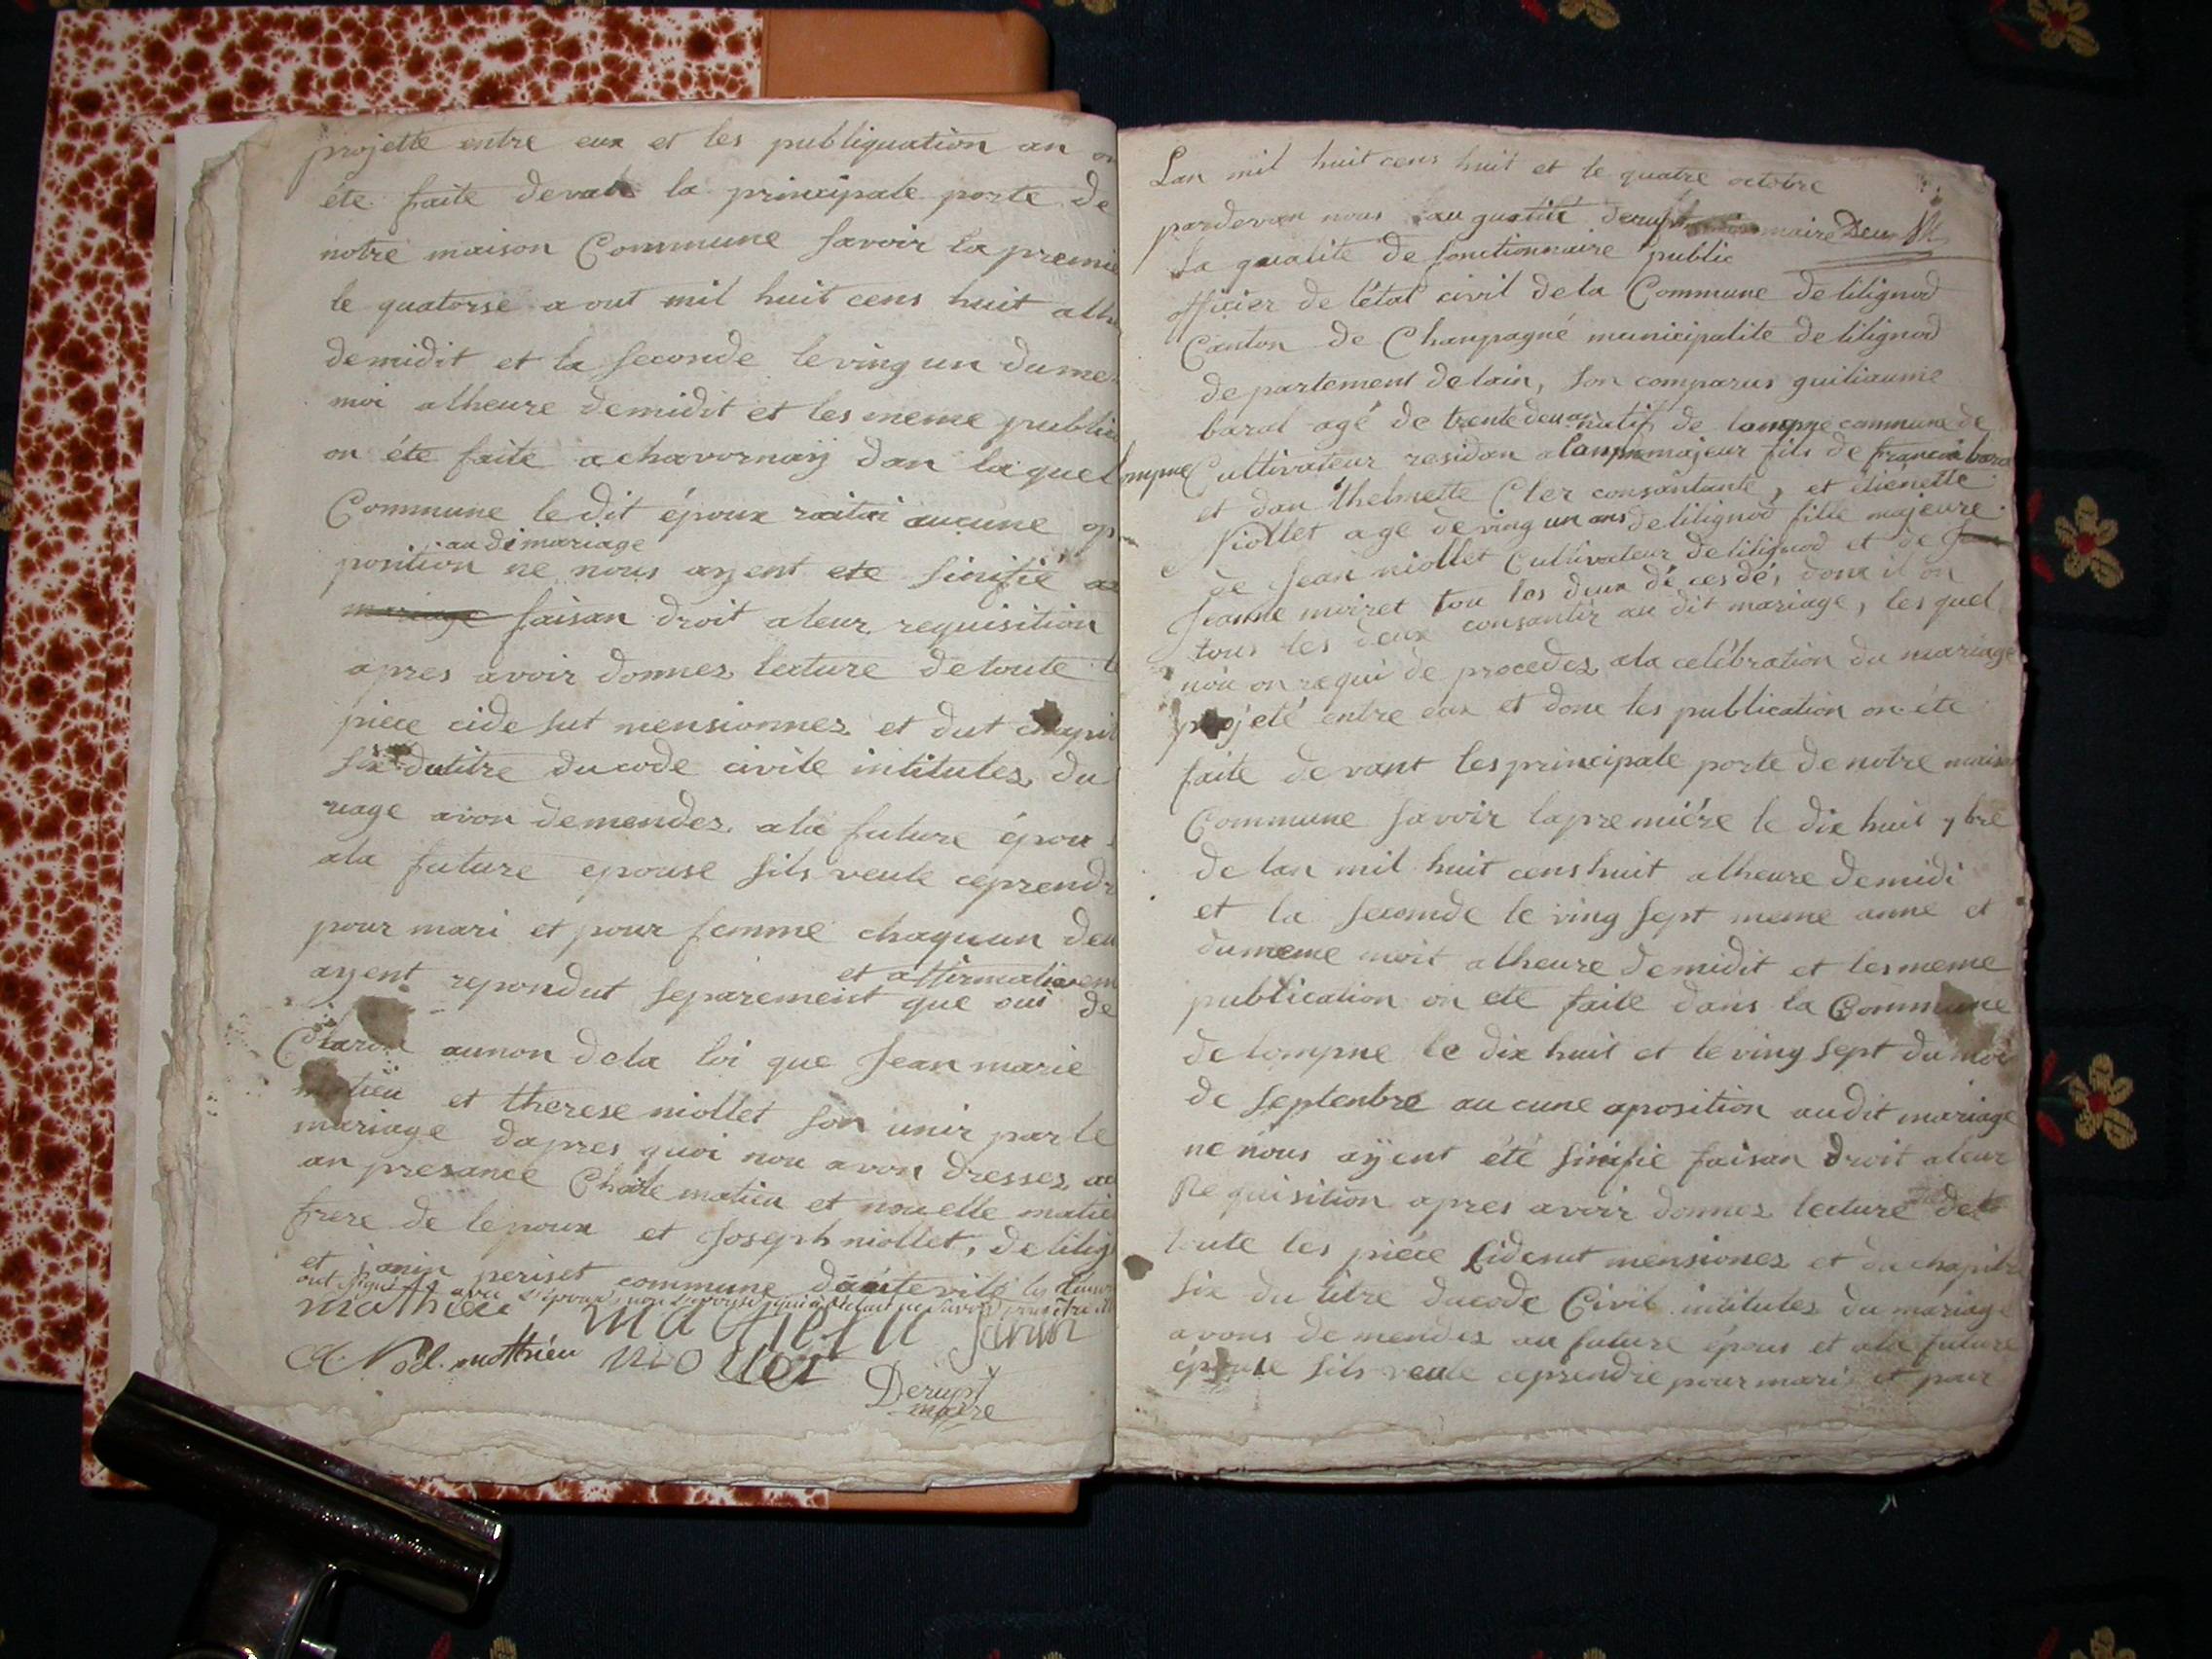 projette entre eux et les publiquation an on
été faite devant la principale porte de
notre maison Commune savoir la premie
le quatorse aout mil huit cens huit alh
demidit et la seconde le ving un dume
moi alheure demidit et les meme public
on éte faite achavornaÿ dan la quel
Commune le dit époux op
au di mariage
position ne nous ayent ete sinifié
mariage faisan droit aleur requisition
apres avoir donnez lecture detoute
piece cide sut mensionnez et dut
six dutitre ducode civile intitulez du
riage avon demendez ala future épou
ala future epouse sils veule ceprendr
pour mari et pour femme chaquun deu
et affirmativem
ayent repondut separement que oui de
Claron aunon dela loi que Jean marie
matieu et therese niollet son unir par le
mariage dapres quoi nou avon dressez ac
an presance Charle matieu et nouelle matie
frere de lepoux et Joseph niollet, de lilig
et janin periset commune
ont signé avec l'époux non l'epouse
mathieu Janin
Noel. matthieu niollet
Derupt
maire
Lan mil huit cens huit et le quatre octobre
pardevan nous augustite derupt maire
La qualite de fonctionnaire public
officier de létat civil dela Commune delilignod
Canton de Champagne municipalite delilignod
departement delain, son comparus guiliaume
baral agé de trente deux ans natif de lompne commune de
lompne Cultivateur residan alompne majeur fils de francoi bara
et dan thelmette Cler consantante, et étienette
Niollet age deving un ans delilignod fille majeure
de Jean niollet Cultivateur delilignod et de
Jeanne moiret tou les deux décesdés donx il on
tous les deux consantir au dit mariage, les quel
nou on requi de procedez ala celébration du mariage
projeté entre eux et donc les publication on éte
faite devant les principale porte denotre maison
Commune savoir lapremiére le dix huit 7bre
de lan mil huit cens huit alheure demidi
et la seconde le ving sept meme anne et
dumeme moit alheure demidit et lesmeme
publication on ete faite dans la Commune
delompne le dix huit et leving sept du moi
de septenbre aucune aposition audit mariage
ne nous aÿent été sinifie faisan droit aleur
Requisition apres avoir donnez lecture de
toute les piéce mensionez et du chapitre
six du titre ducode Civil intitulez du mariage
avons demendez au future épous et ala future
épouse sils veule ceprendre pour mari et pour